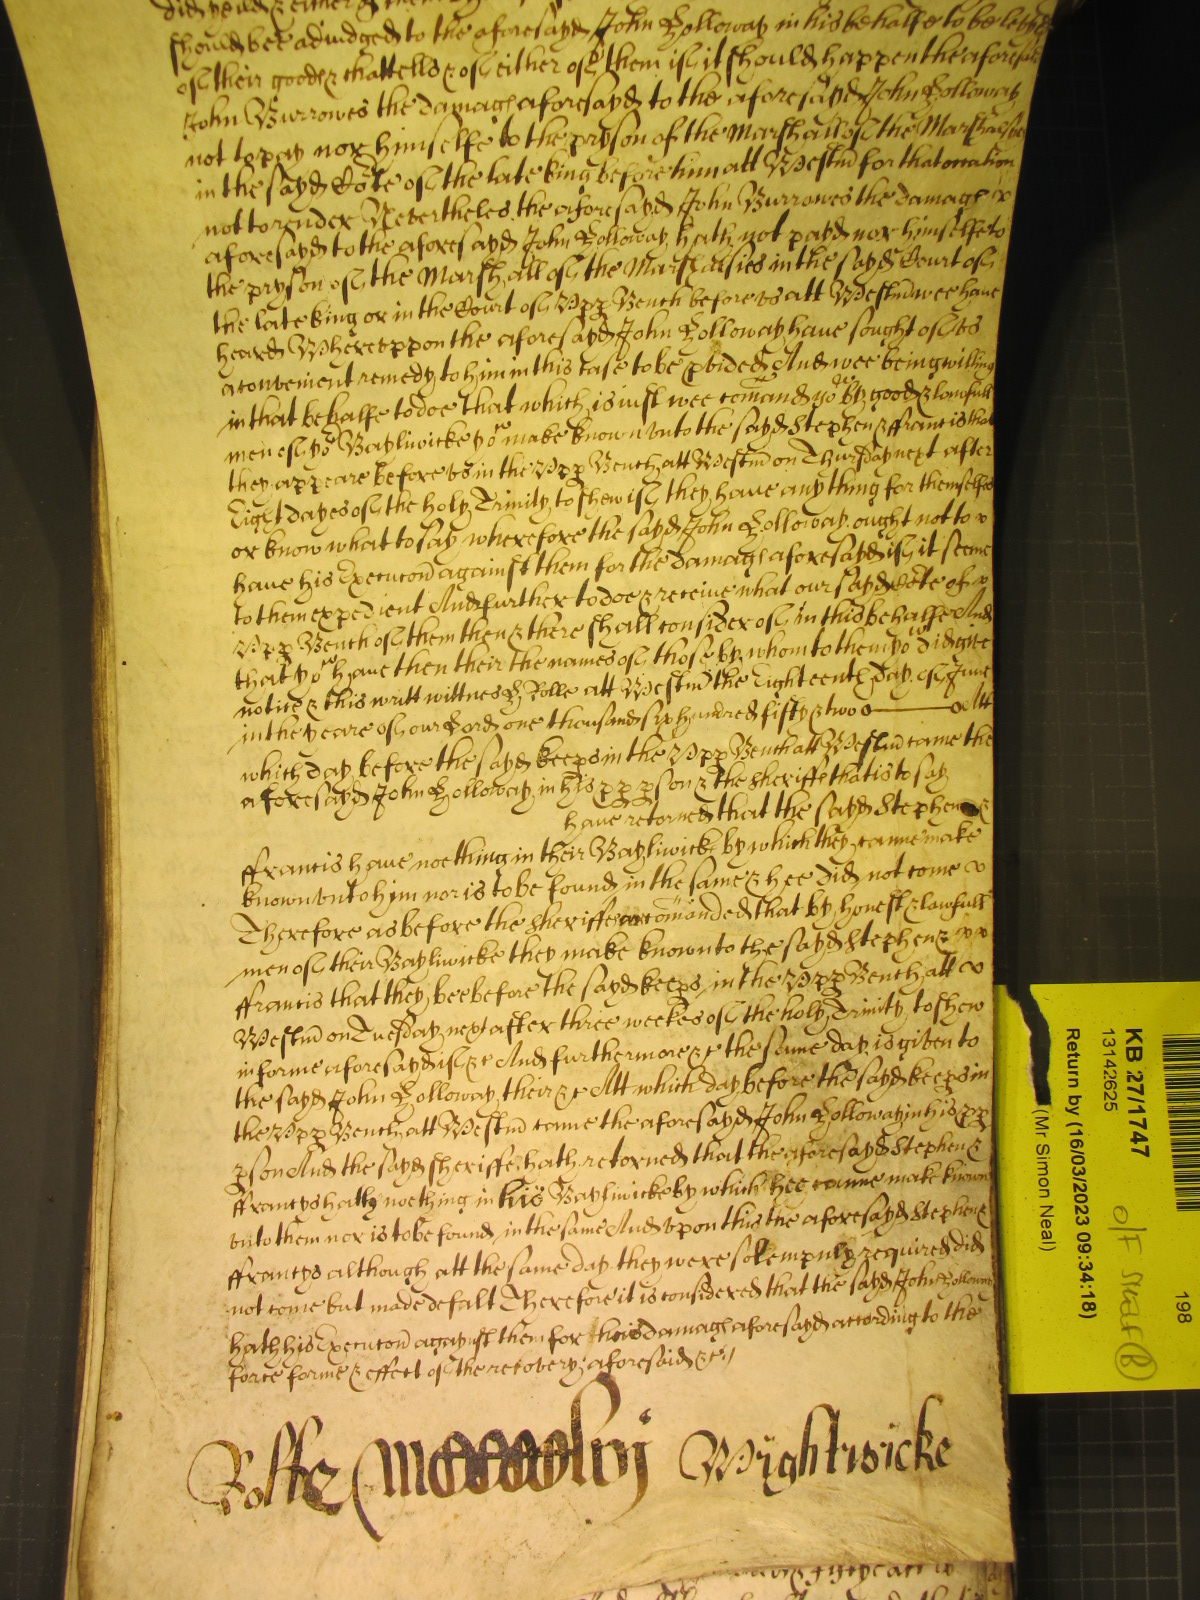 should bee adiudged to the aforesayd John Holloway in his behalfe to be levyed
of their goods & chattells & of either of them if it should happen the aforesayd
John Burrowes the damags aforesayd to the aforesayd John Holloway
not to pay nor himselfe to the pryson of the Marshall of the Marshalsies
in the sayd Co͠te of the late king before him att Westm̃ for that occasion
not to render Nevertheles the aforesayd John Burrowes the damags
aforesayd to the aforesayd John Holloway hath not payd nor himselfe to
the pryson of the Marshall of the Marshalsies in the sayd Court of
the late king or in the Court of Upp Bench before us att Westm̃ wee have
heard Whereuppon the aforesayd John Holloway have sought of us
a convenient remedy to him in this case to be p̱vided And wee being willing
in that behalfe to doe that which is iust wee com̃and yo͏ͧ by good & lawfull
men of yoͬ Bayliwicke yoͧ make known unto the sayd Stephen & ffrancis that
they appeare before us in the Upp Bench att Westm̃ on Thursday next after
Eight dayes of the holy Trinity to shew if they have any thing for themselfes
or know what to say wherefore the sayd John Holloway ought not to
have his Execuco͠n against them for the damags aforesayd if it seeme
to them expedient And further to doe & receive what our sayd Co͠te of
Upp Bench of them then & there shall consider of in this behalfe And
that yoͧ have then their the names of those by whom to them yoͧ did give
notice & this writt wittnes H Rolle att Westm̃ the Eighteenth day of June
in the yeare of our Lord one thousand six hundred fifty & two Att
which day before the sayd keeps in the Upp Bench att Westm̃ came the
aforesayd John Holloway in his pp p̱son & the sheriffe that is to say
have retorned that the sayd Stephen &
ffrancis have noething in their Bayliwicke by which they canne make
known unto him nor is to be found in the same & hee did not come
Therefore as before the sheriffe com̃anded that by honest & lawfull
men of their Bayliwicke they make known to the sayd Stephen &
ffrancis that they bee before the sayd keeps in the Upp Bench att
Westm̃ on Tuesday next after three weekes of the holy Trinity to shew
in forme aforesayd if &c And furthermore &c the same day is given to
the sayd John Holloway their &c Att which day before the sayd keeps in
the Upp Bench att Westm̃ came the aforesayd John Holloway in his pp
p̱son And the sayd sheriffe hath retorned that the aforesayd Stephen &
ffrancys hath noething in his Bayliwicke by which hee canne make known
unto them nor is to be found in the same And upon this the aforesayd Stephen &
ffrancys although att the same day they were solempnly required did
not come but made defalt Therefore it is considered that the sayd John Holloway
hath his Execuco͠n against them for his damags aforesayd according to the
force forme & effect of the recovery aforesaid &c
Rolle Wightwicke
198
KB 27/1747
13142625
Return by (16/03/2023 09:34:18)
(Mr Simon Neal)